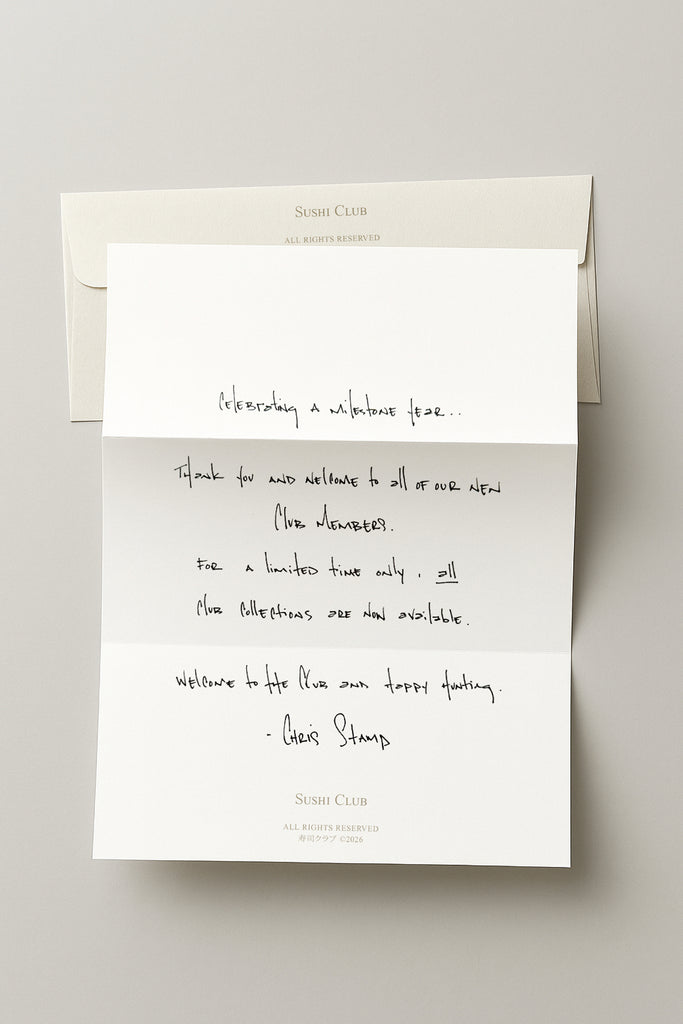 SUSHI CLUB
ALL RIGHTS RESERVED
Celebrating a milestone year..
Thank you and welcome to all of our new
Club Members.
For a limited time only, all
Club Collections are now available.
Welcome to the Club and happy hunting.
- Chris Stamp
SUSHI CLUB
ALL RIGHTS RESERVED
寿司クラブ ©2026